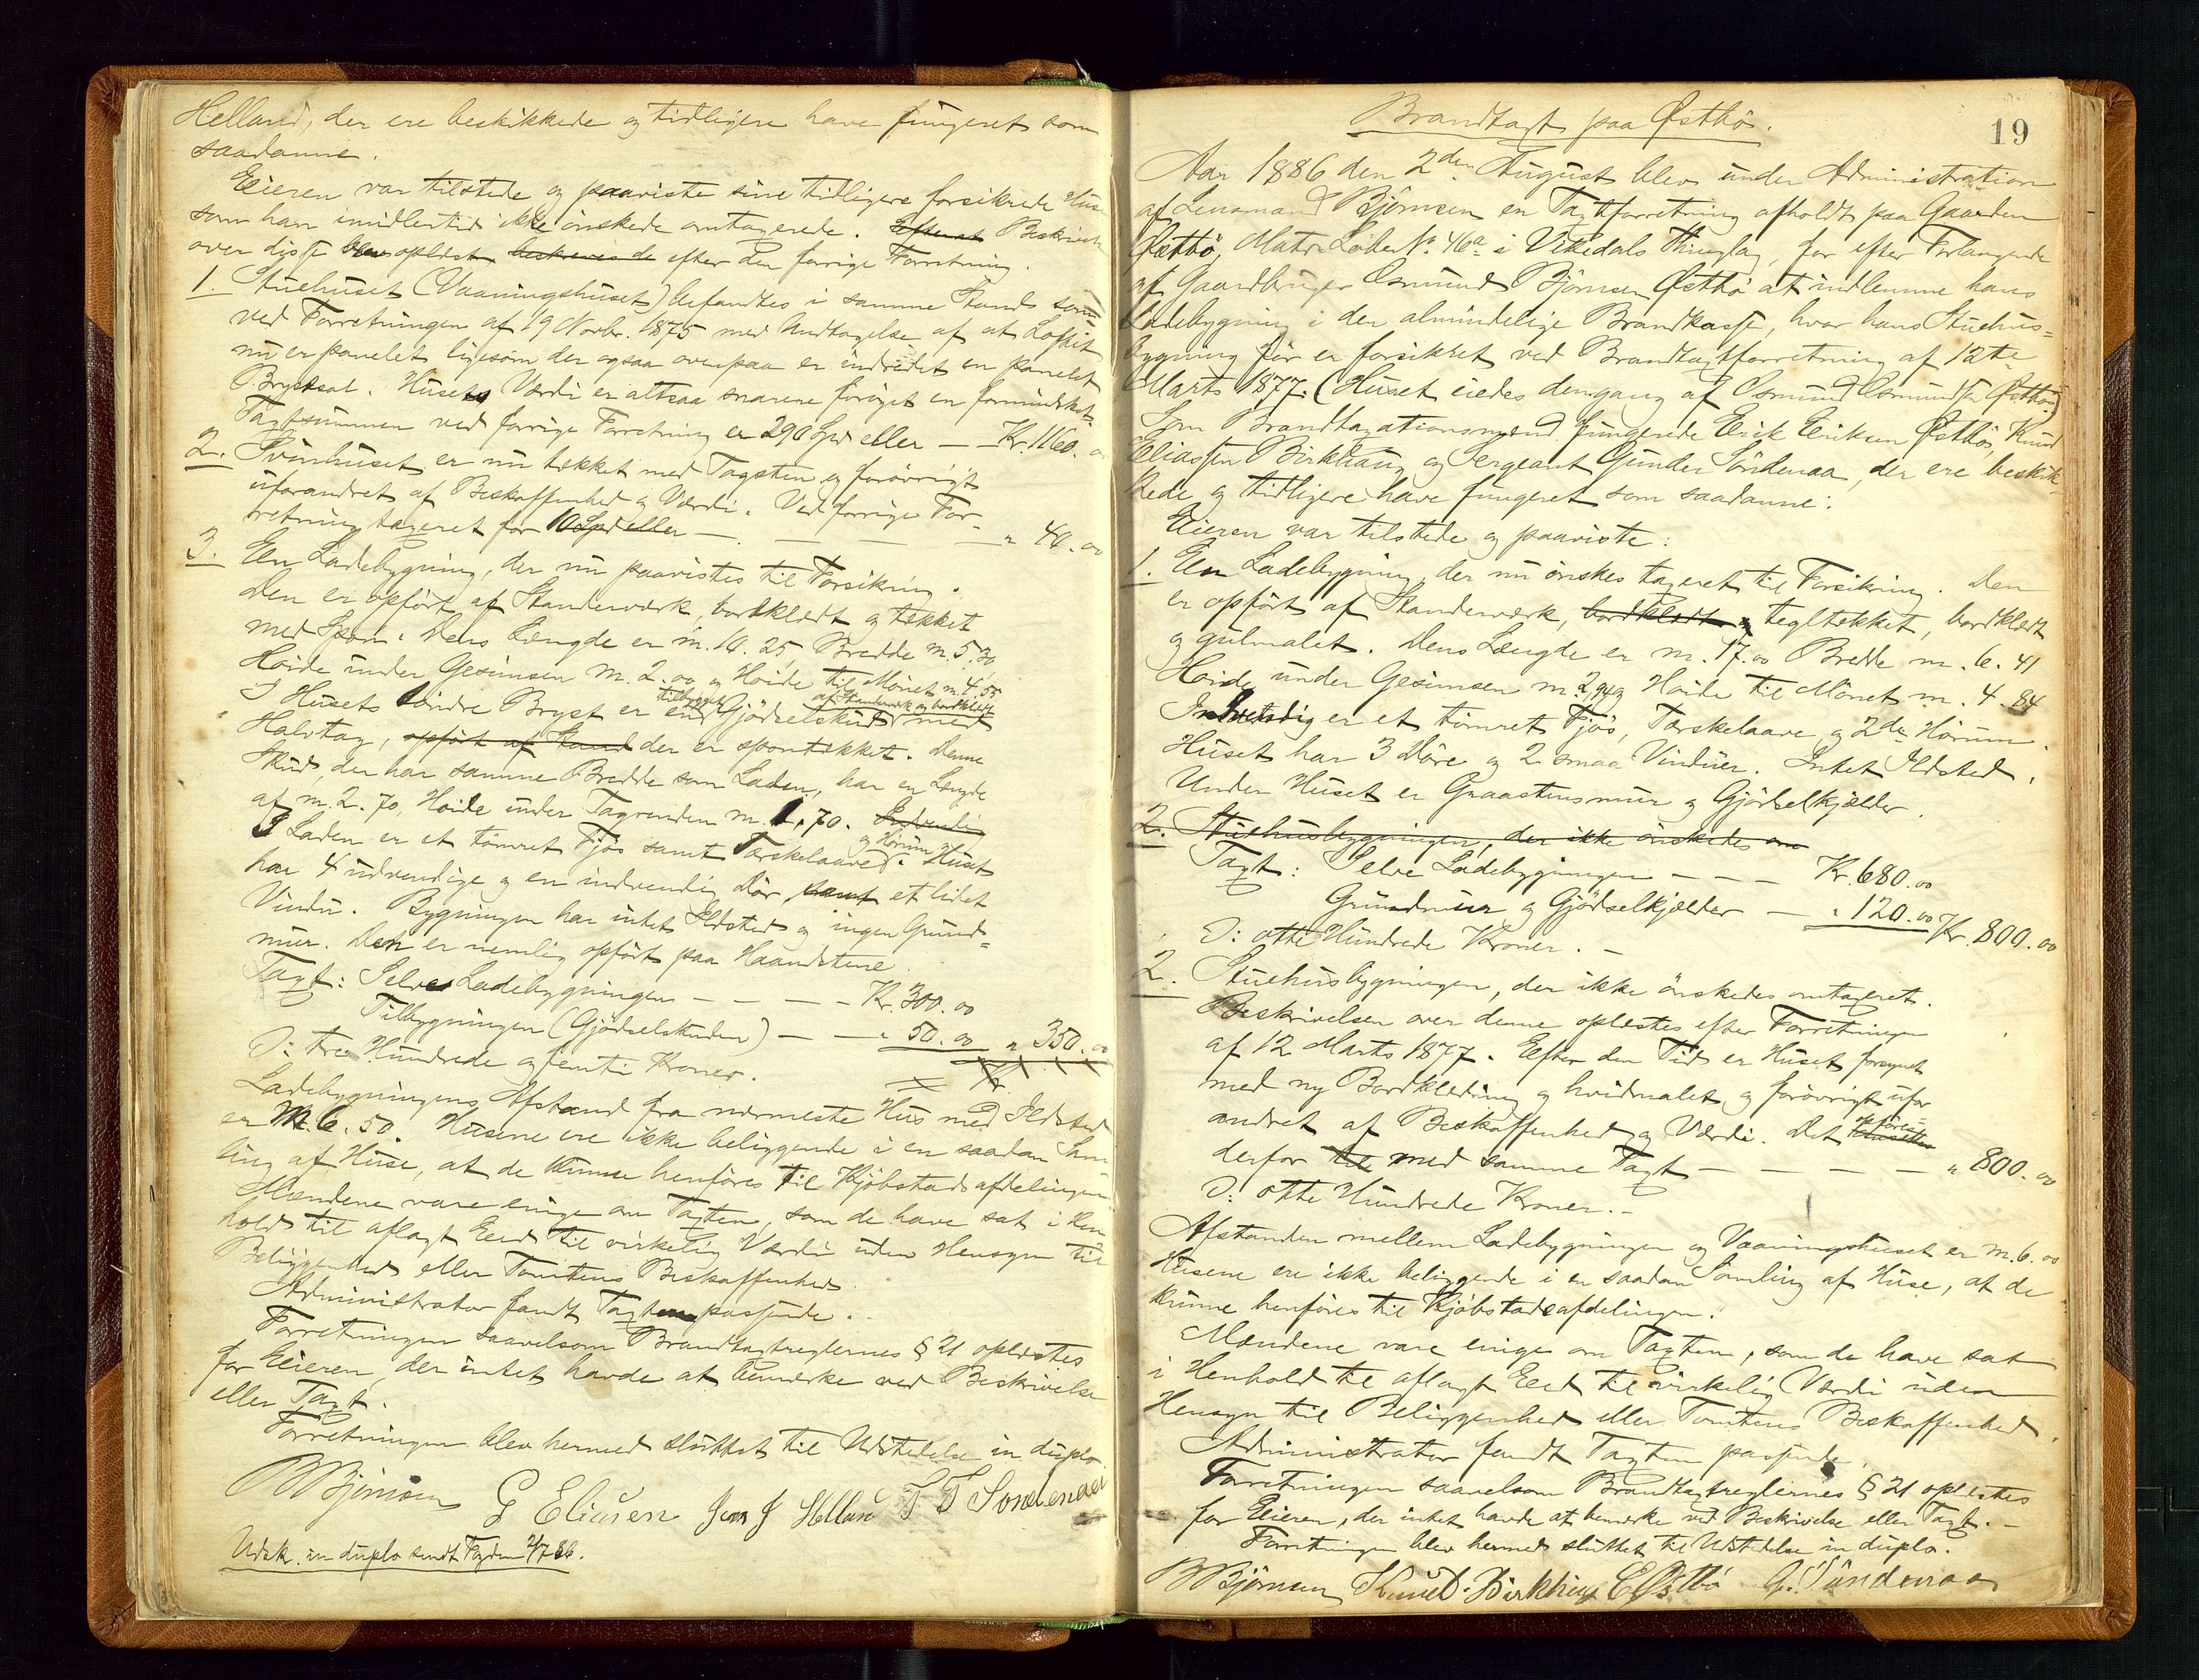 Helland, der ere beskikkede og tidligere have fungeret som
saadanne.
Eieren var tilstede og paaviste sine tidligere forsikrede Huse
som han imidlertid ikke ønskede omtaxerede. Beskrivelse
over disse blev oplæst efter den forrige Forretning.
1. Stuehuset (Vaaningshuset) befandtes i samme Stand som
ved Forretningen af 19 Novbr. 1875 med Undtagelse af at Loftet
nu er panelet ligesom der ogsaa ovenpaa er indredet en panelet
Brystsal. Husets Værdi er altsaa snarere forøget en formindsket.
Taxtsummen ved forrige Forretning er 290 Spd eller — Kr. 1160.00
2. Svinhuset er nu tækket med Tagsten og forøvrigt
uforandret af Beskaffenhed og Værdi. Ved forrige For-
retning taxeret for 10 Spd eller — — — — " 40.00
3. En Ladebygning, der nu paavistes til Forsikring.
Den er opført af Standerværk, bordklædt og tækket
med Spon. Dens Længde er m. 10.25, Bredde m. 5.30
Høide under Gesimsen m. 2.00 og Høide til Mønet m. 4.55
I Husets søndre Bryst er tilbygget en Gjødselskud af Standerværk og bordklædt med
Halvtag, opført af Stand der er spontækket. Denne
Skud, der har samme Bredde som Laden, har en Længde
af m. 2.70, Høide under Tagrenden m. 1,70. Indvendig
I Laden er et tømret Fjøs samt Tærskelaave og Hörum. Huset
har 4 udvendige og en indvendig Dør, samt et lidet
Vindu. Bygningen har intet Ildsted og ingen Grund-
mur. Den er nemlig opført paa Haandstene.
Taxt: Selve Ladebygningen — — — — Kr. 300.00
Tilbygningen (Gjødselskuden) — — " 50.00 " 350.00
ɔ: tre Hundrede og femti Kroner. Kr.
Ladebygningens Afstand fra nærmeste Hus med Ildsted
er M. 6.50. Husene ere ikke beliggende i en saadan Sam-
ling af Huse, at de kunne henføres til Kjøbstadsafdelingen
Mændene vare enige om Taxten, som de have sat i Hen-
hold til aflagt Eed til virkelig Værdi uden Hensyn til
Beliggenhed eller Tomtens Beskaffenhed.
Administrator fandt Taxten passende.
Forretningen saavelsom Brandtaxtreglernes § 21 oplæstes
for Eieren, der intet havde at bemærke ved Beskrivelse
eller Taxt.
Forretningen blev hermed sluttet til Udstedelse in duplo
Bjørnsen G Eliasen Jon J Helland T T Søndenaa
Udsk. in duplo sendt Fogden 2/7 86.
19
Brandtaxt paa Østbø.
Aar 1886 den 2den August blev under Administration
af Lensmand Bjørnsen en Taxtforretning afholdt paa Gaarden
Østbø, Matr. Løbe No. 46a i Vikedals Thinglag, for efter Forlangende
af Gaardbruger Osmund Bjørnsen Østbø at indlemme hans
Ladebygning i den almindelige Brandkasse, hvor hans Stuehus-
bygning før er forsikret ved Brandtaxtforretning af 12te
Marts 1877. (Huset eiedes dengang af Osmund Osmundsen Østbø)
Som Brandtaxationsmænd fungerede Eirik Eriksen Østbø, Knud
Eliassen Birkhaug og Sergeant Gunder Søndenaa, der ere beskik-
kede og tidligere have fungeret som saadanne:
Eieren var tilstede og paaviste:
1. En Ladebygning, der nu ønskes taxeret til Forsikring. Den
er opført af Standerværk, bordklædt og tegltækket, bordklædt
og gulmalet. Dens Længde er m. 17.00 Bredde m. 6.41
Høide under Gesimsen m. 2,94 og Høide til Mønet m. 4.84
Indvendig er et tømret Fjøs, Tærskelaave og 2de Hørum.
Huset har 3 Døre og 2 smaa Vinduer. Intet Ildsted.
Under Huset er Graastensmur og Gjødselkjælder.
2. Stuehusbygningen, der ikke ønskedes om
Taxt: Selve Ladebygningen — — — Kr. 680.00
Grundmur og Gjødselkjælder — " 120.00 Kr. 800.00
ɔ: otte Hundrede Kroner. —
2. Stuehusbygningen, der ikke ønskedes omtaxeret.
Beskrivelsen over denne oplæstes efter Forretningen
af 12 Marts 1877. Efter den Tid er Huset forsynet
med ny Bordklædning og hvidmalet og forøvrigt ufor-
andret af Beskaffenhed og Værdi. Det opføres
derfor til med samme Taxt — — — — " 800.00
ɔ: otte Hundrede Kroner. —
Afstanden mellem Ladebygningen og Vaaningshuset er m. 6.00
Husene ere ikke beliggende i en saadan Samling af Huse, at de
kunne henføres til Kjøbstadsafdelingen.
Mændene vare enige om Taxten, som de have sat
i Henhold til aflagt Eed til virkelig Værdi uden
Hensyn til Beliggenhed eller Tomtens Beskaffenhed.
Administrator fandt Taxten passende.
Forretningen saavelsom Brandtaxtreglernes § 21 oplæstes
for Eieren, der intet havde at bemærke ved Beskrivelse eller Taxt. —
Forretningen blev hermed sluttet til Udstedelse in duplo.
Bjørnsen Knud E. Birkhaug E Østbø G. Søndenaa